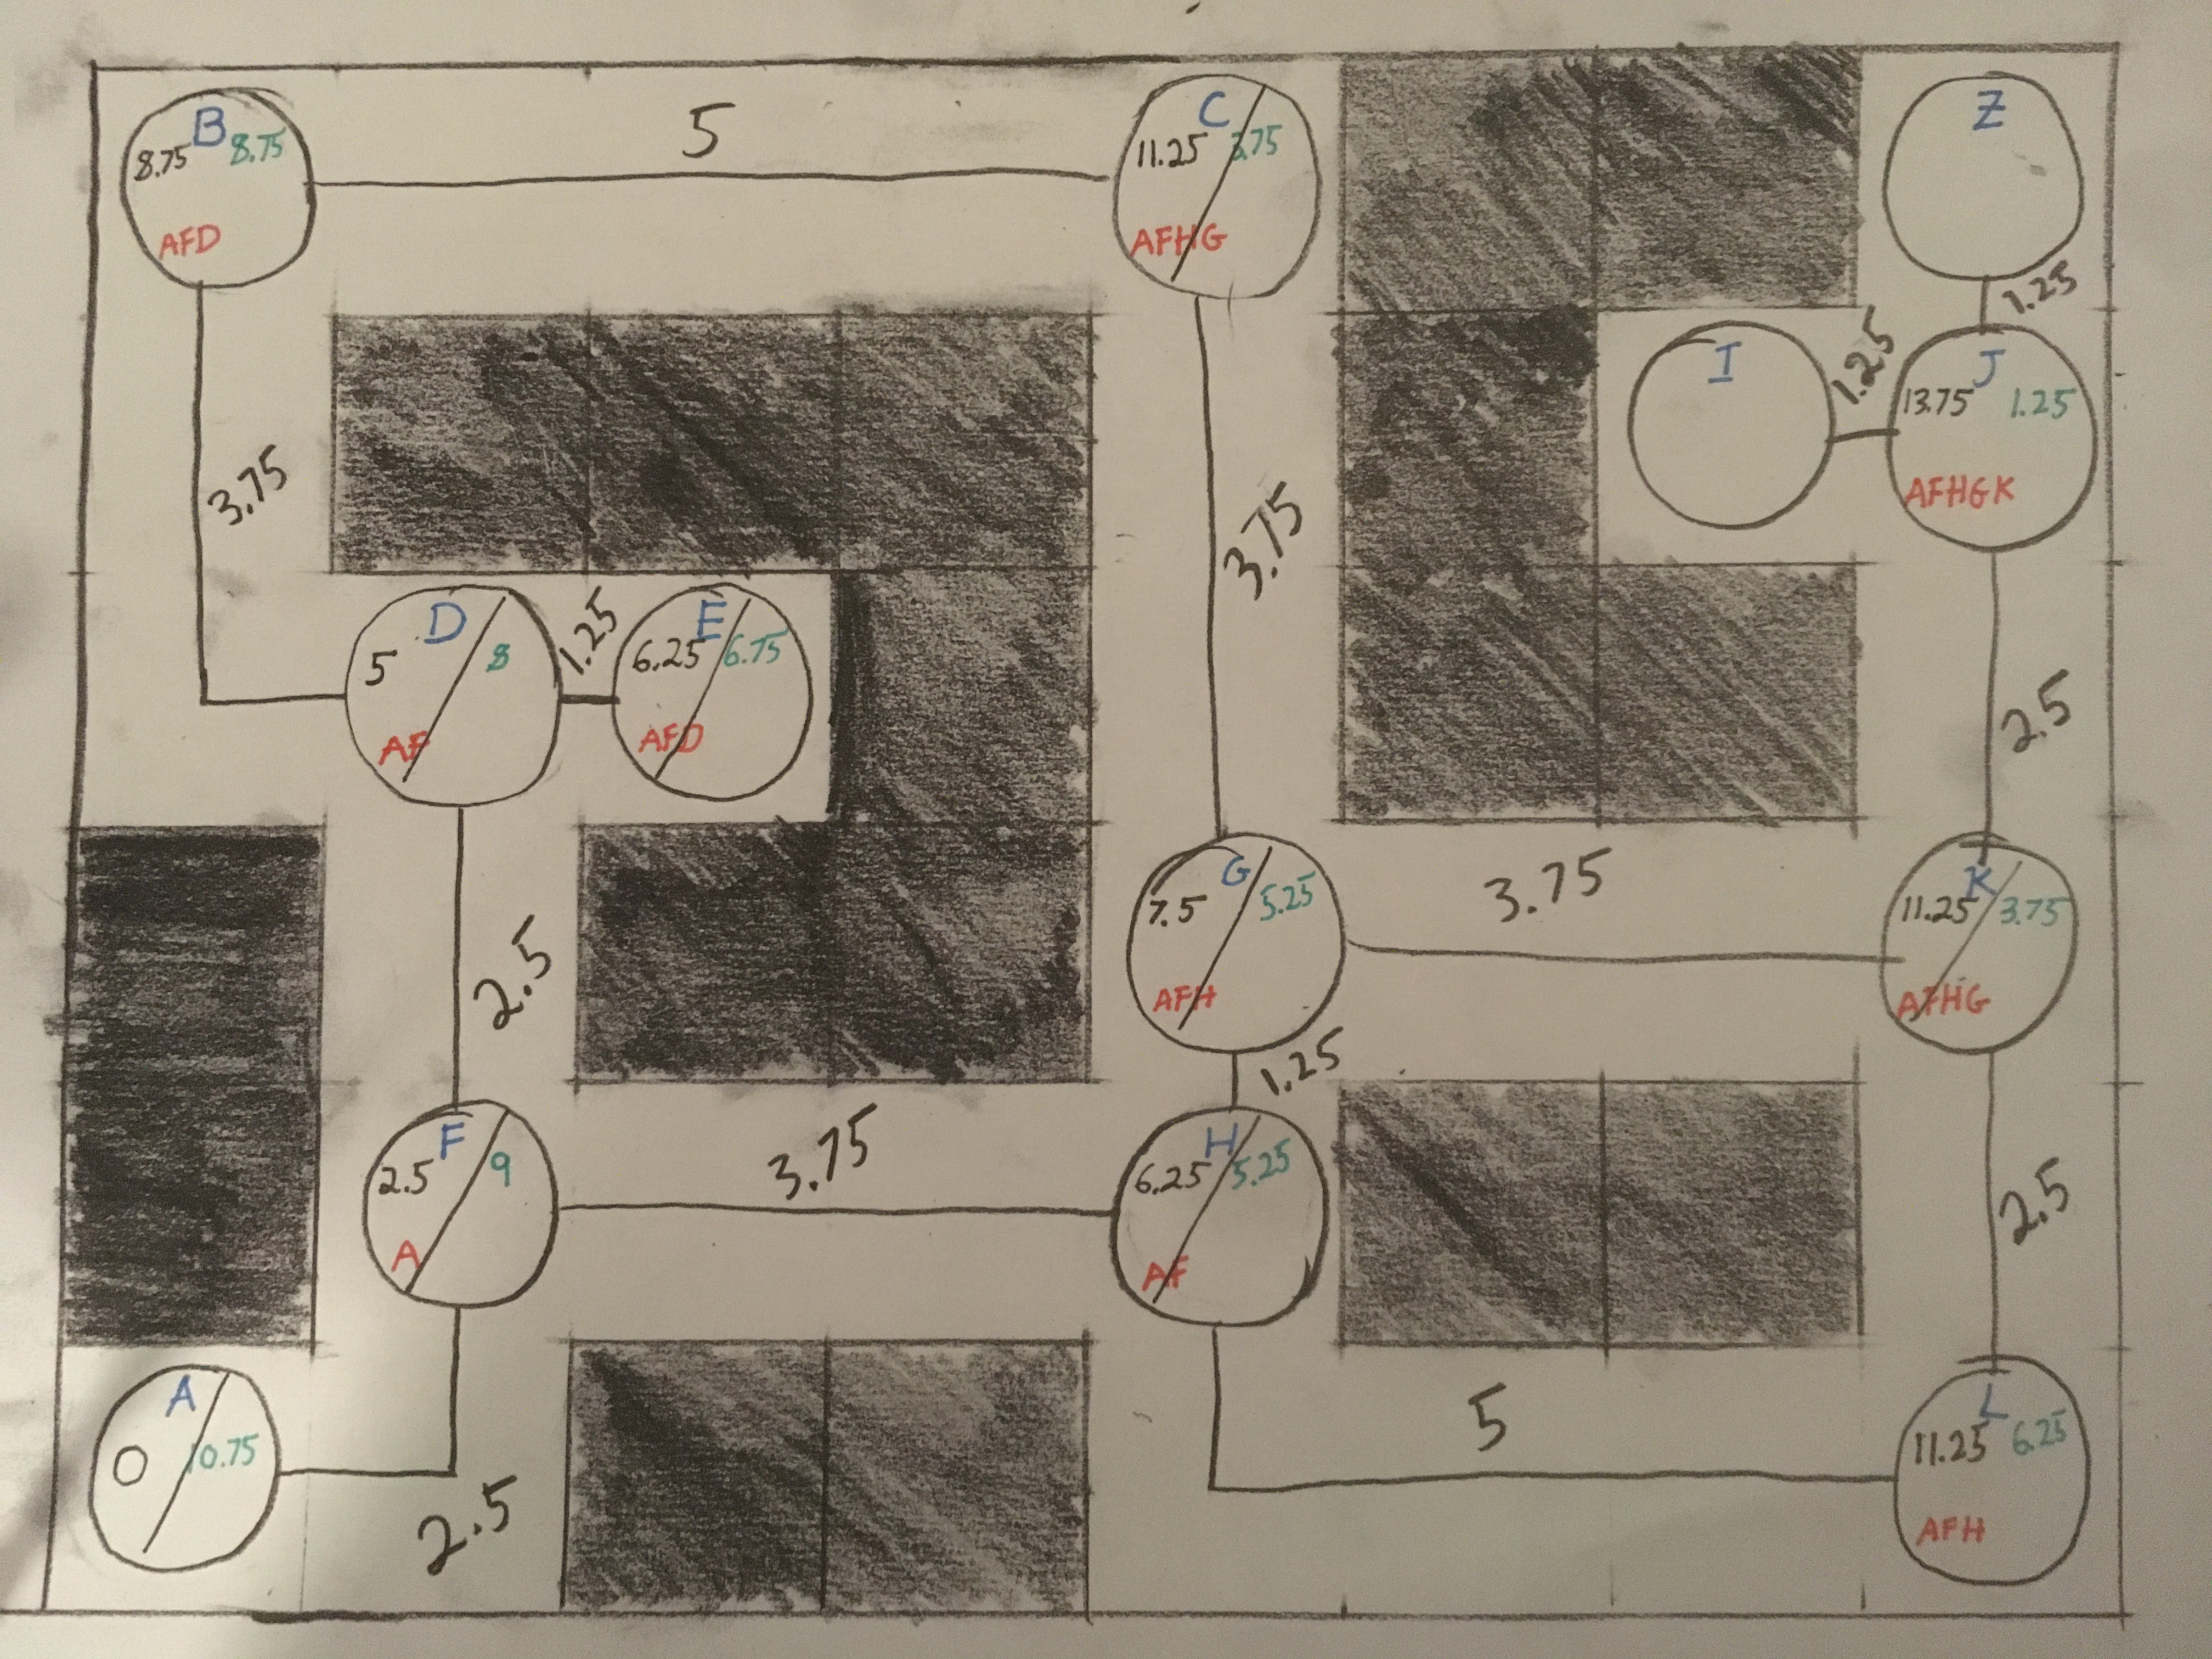 B
8.75 8.75
AFD
5
C
11.25 3.75
AFHG
Z
1.25
I
1.25
J
13.75 1.25
AFHGK
3.75
3.75
D
5 8
AF
1.25
E
6.25 6.75
AFD
2.5
G
7.5 5.25
AFH
3.75
K
11.25 3.75
AFHG
2.5
1.25
F
2.5 9
A
3.75
H
6.25 5.25
AF
2.5
A
0 10.75
2.5
5
L
11.25 6.25
AFH